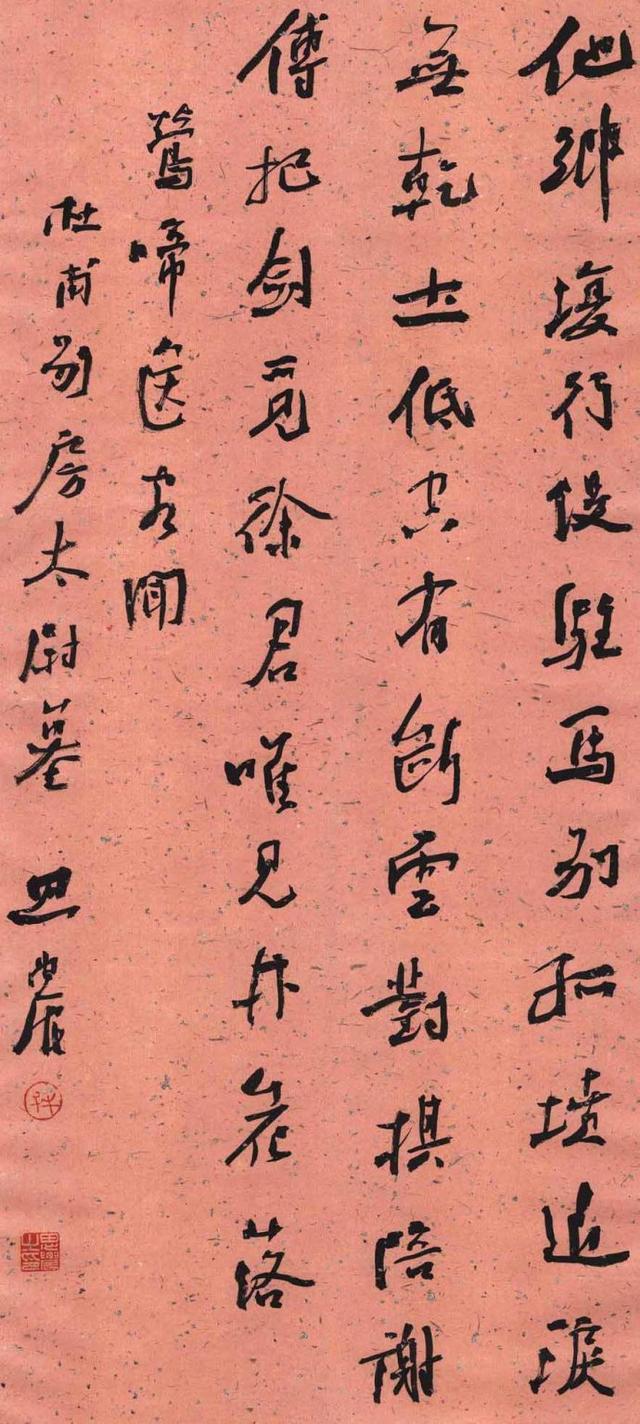 他鄉復行役駐馬別孤墳近淚
無乾土低空有斷雲對棋陪謝
傅把劍覓徐君唯見林花落
鶯啼送客聞
杜甫別房太尉墓